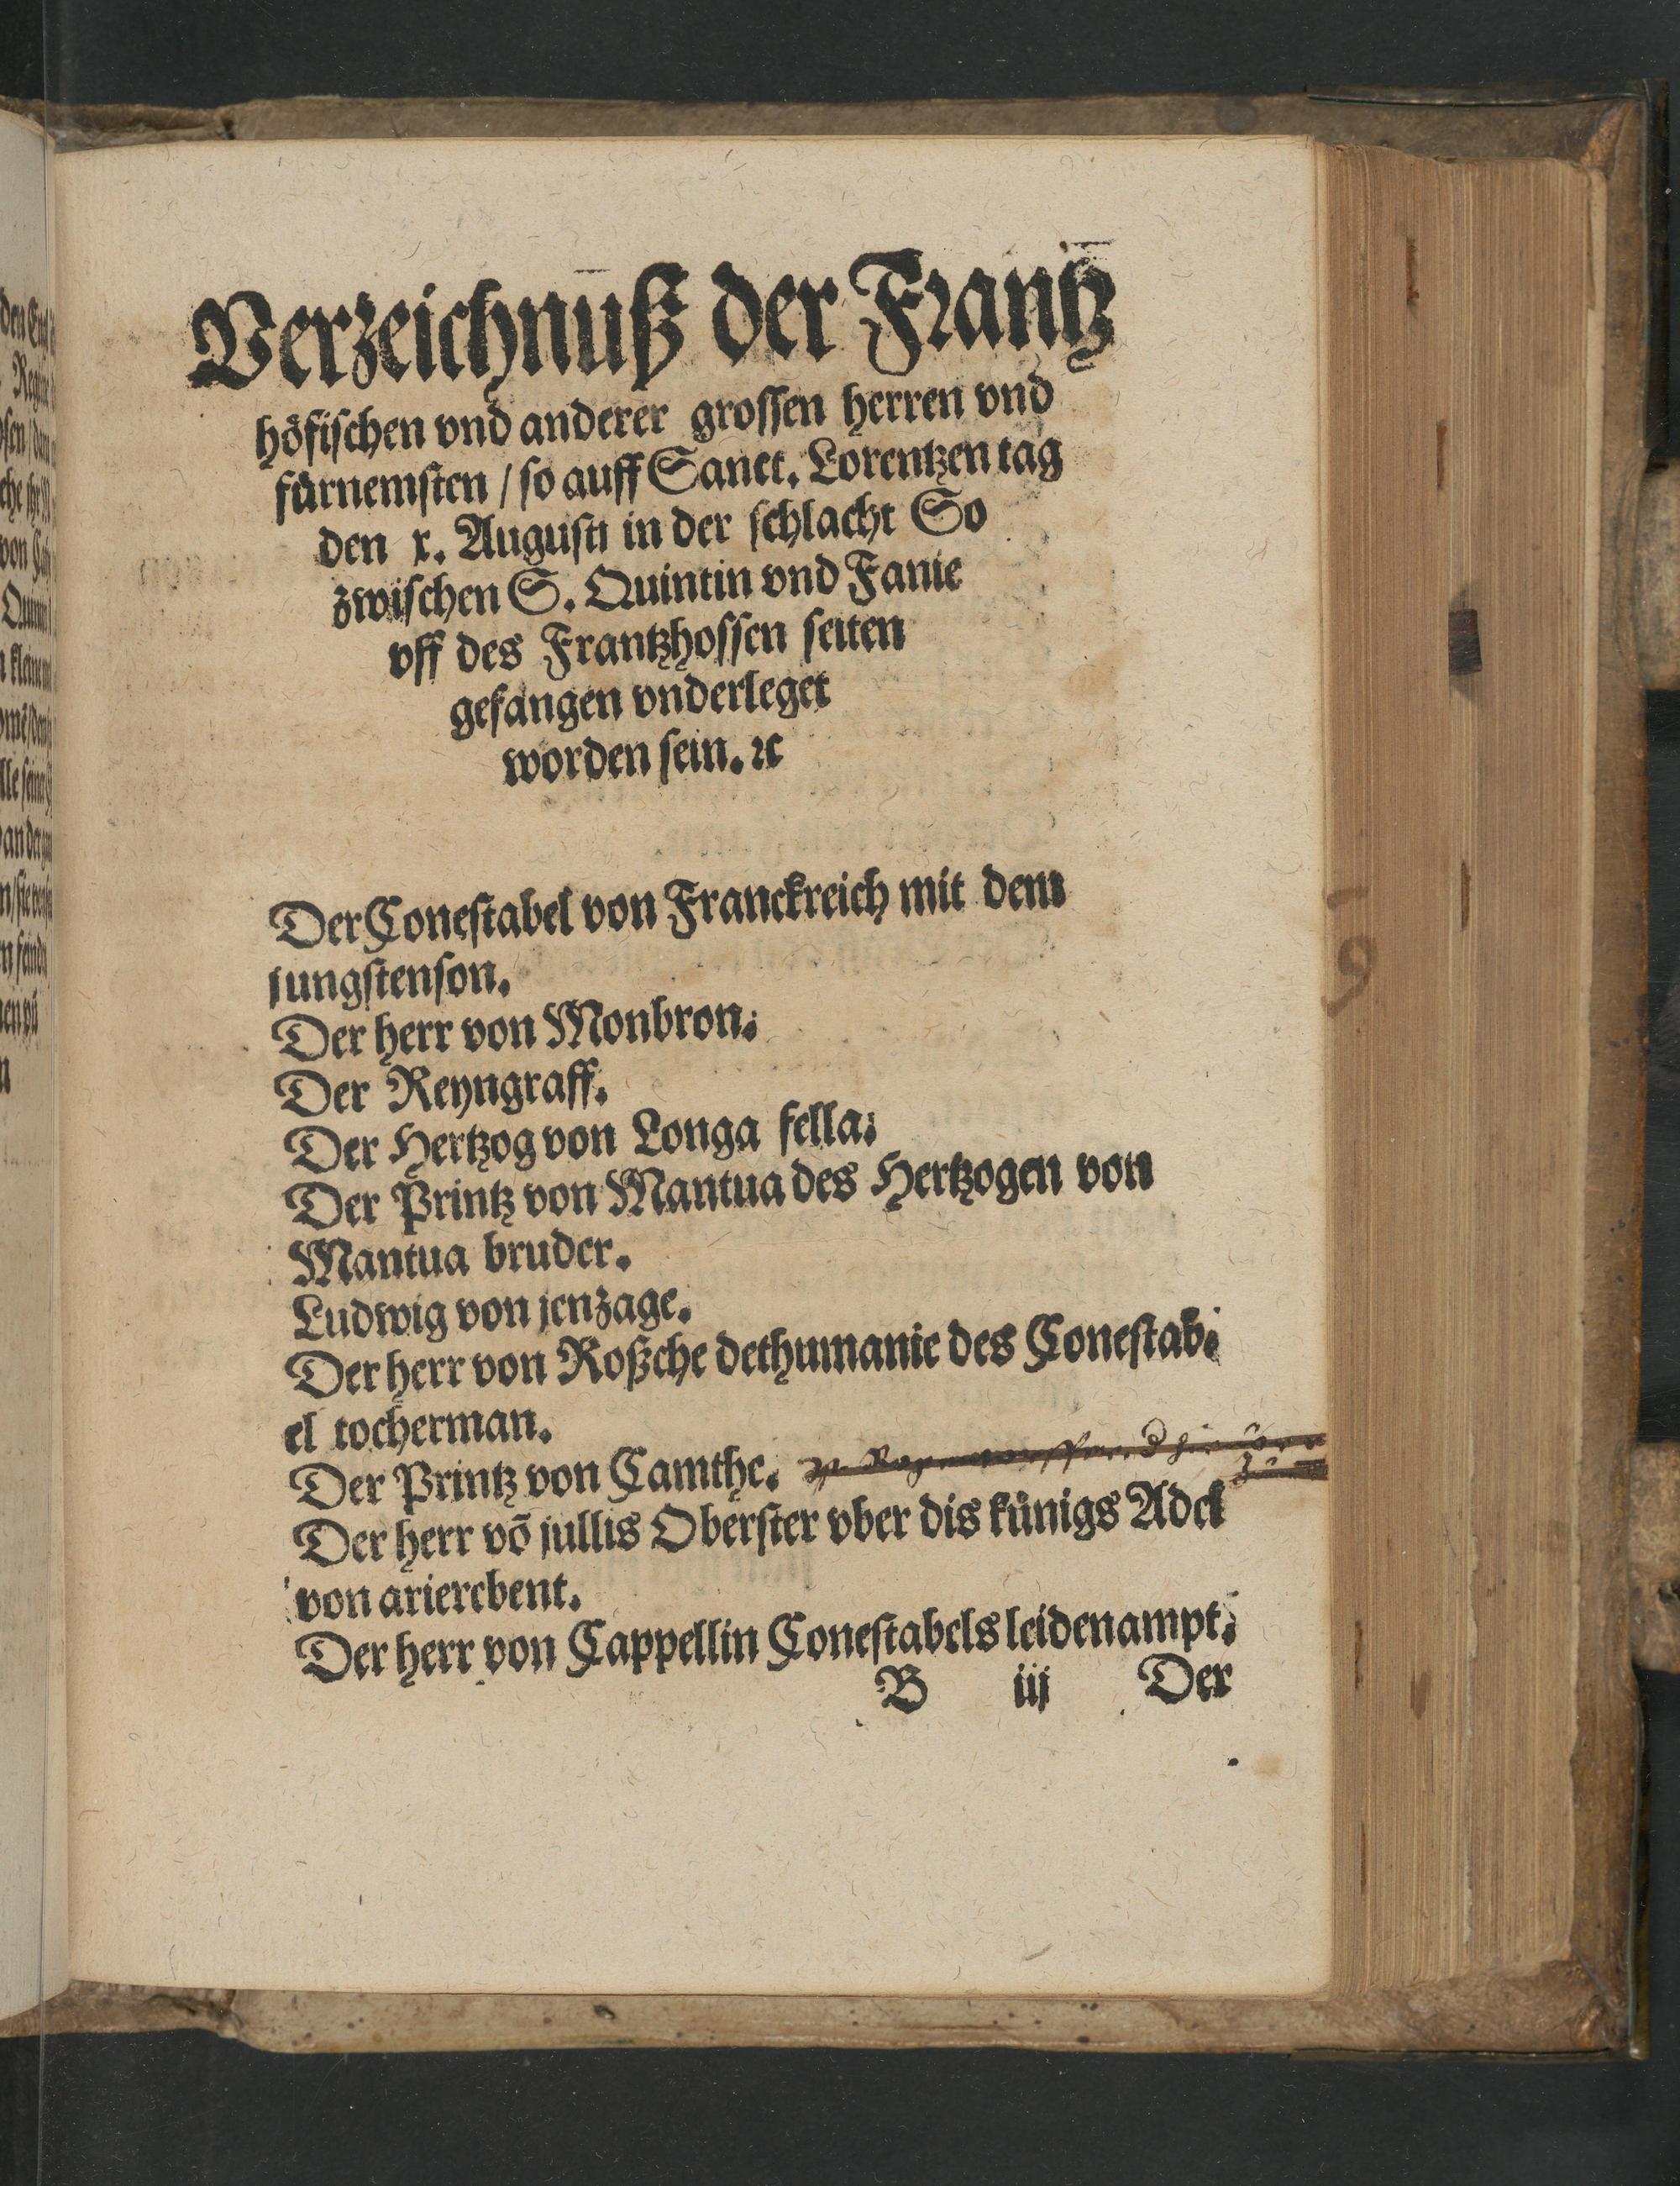 Verzeichnuß der Frantz
höfischen vnd anderer grossen herren vnd
fürnemsten / so auff Sanct. Lorentzen tag
den x. Augusti in der schlacht So
zwischen S. Quintin vnd Fanie
vff des Frantzhossen seiten
gefangen vnderleget
worden sein. ꝛc
Der Conestabel von Franckreich mit dem
jungstenson.
Der herr von Monbron.
Der Reyngraff.
Der Hertzog von Longa fella.
Der Printz von Mantua des Hertzogen von
Mantua bruder.
Ludwig von jenzage.
Der herr von Roßche dethumanie des Conestab.
el tocherman.
Der Printz von Camthe.
Der herr võ jullis Oberster vber dis künigs Adel
von arierebent.
Der herr von Cappellin Conestabels leidenampt.
B iij Der